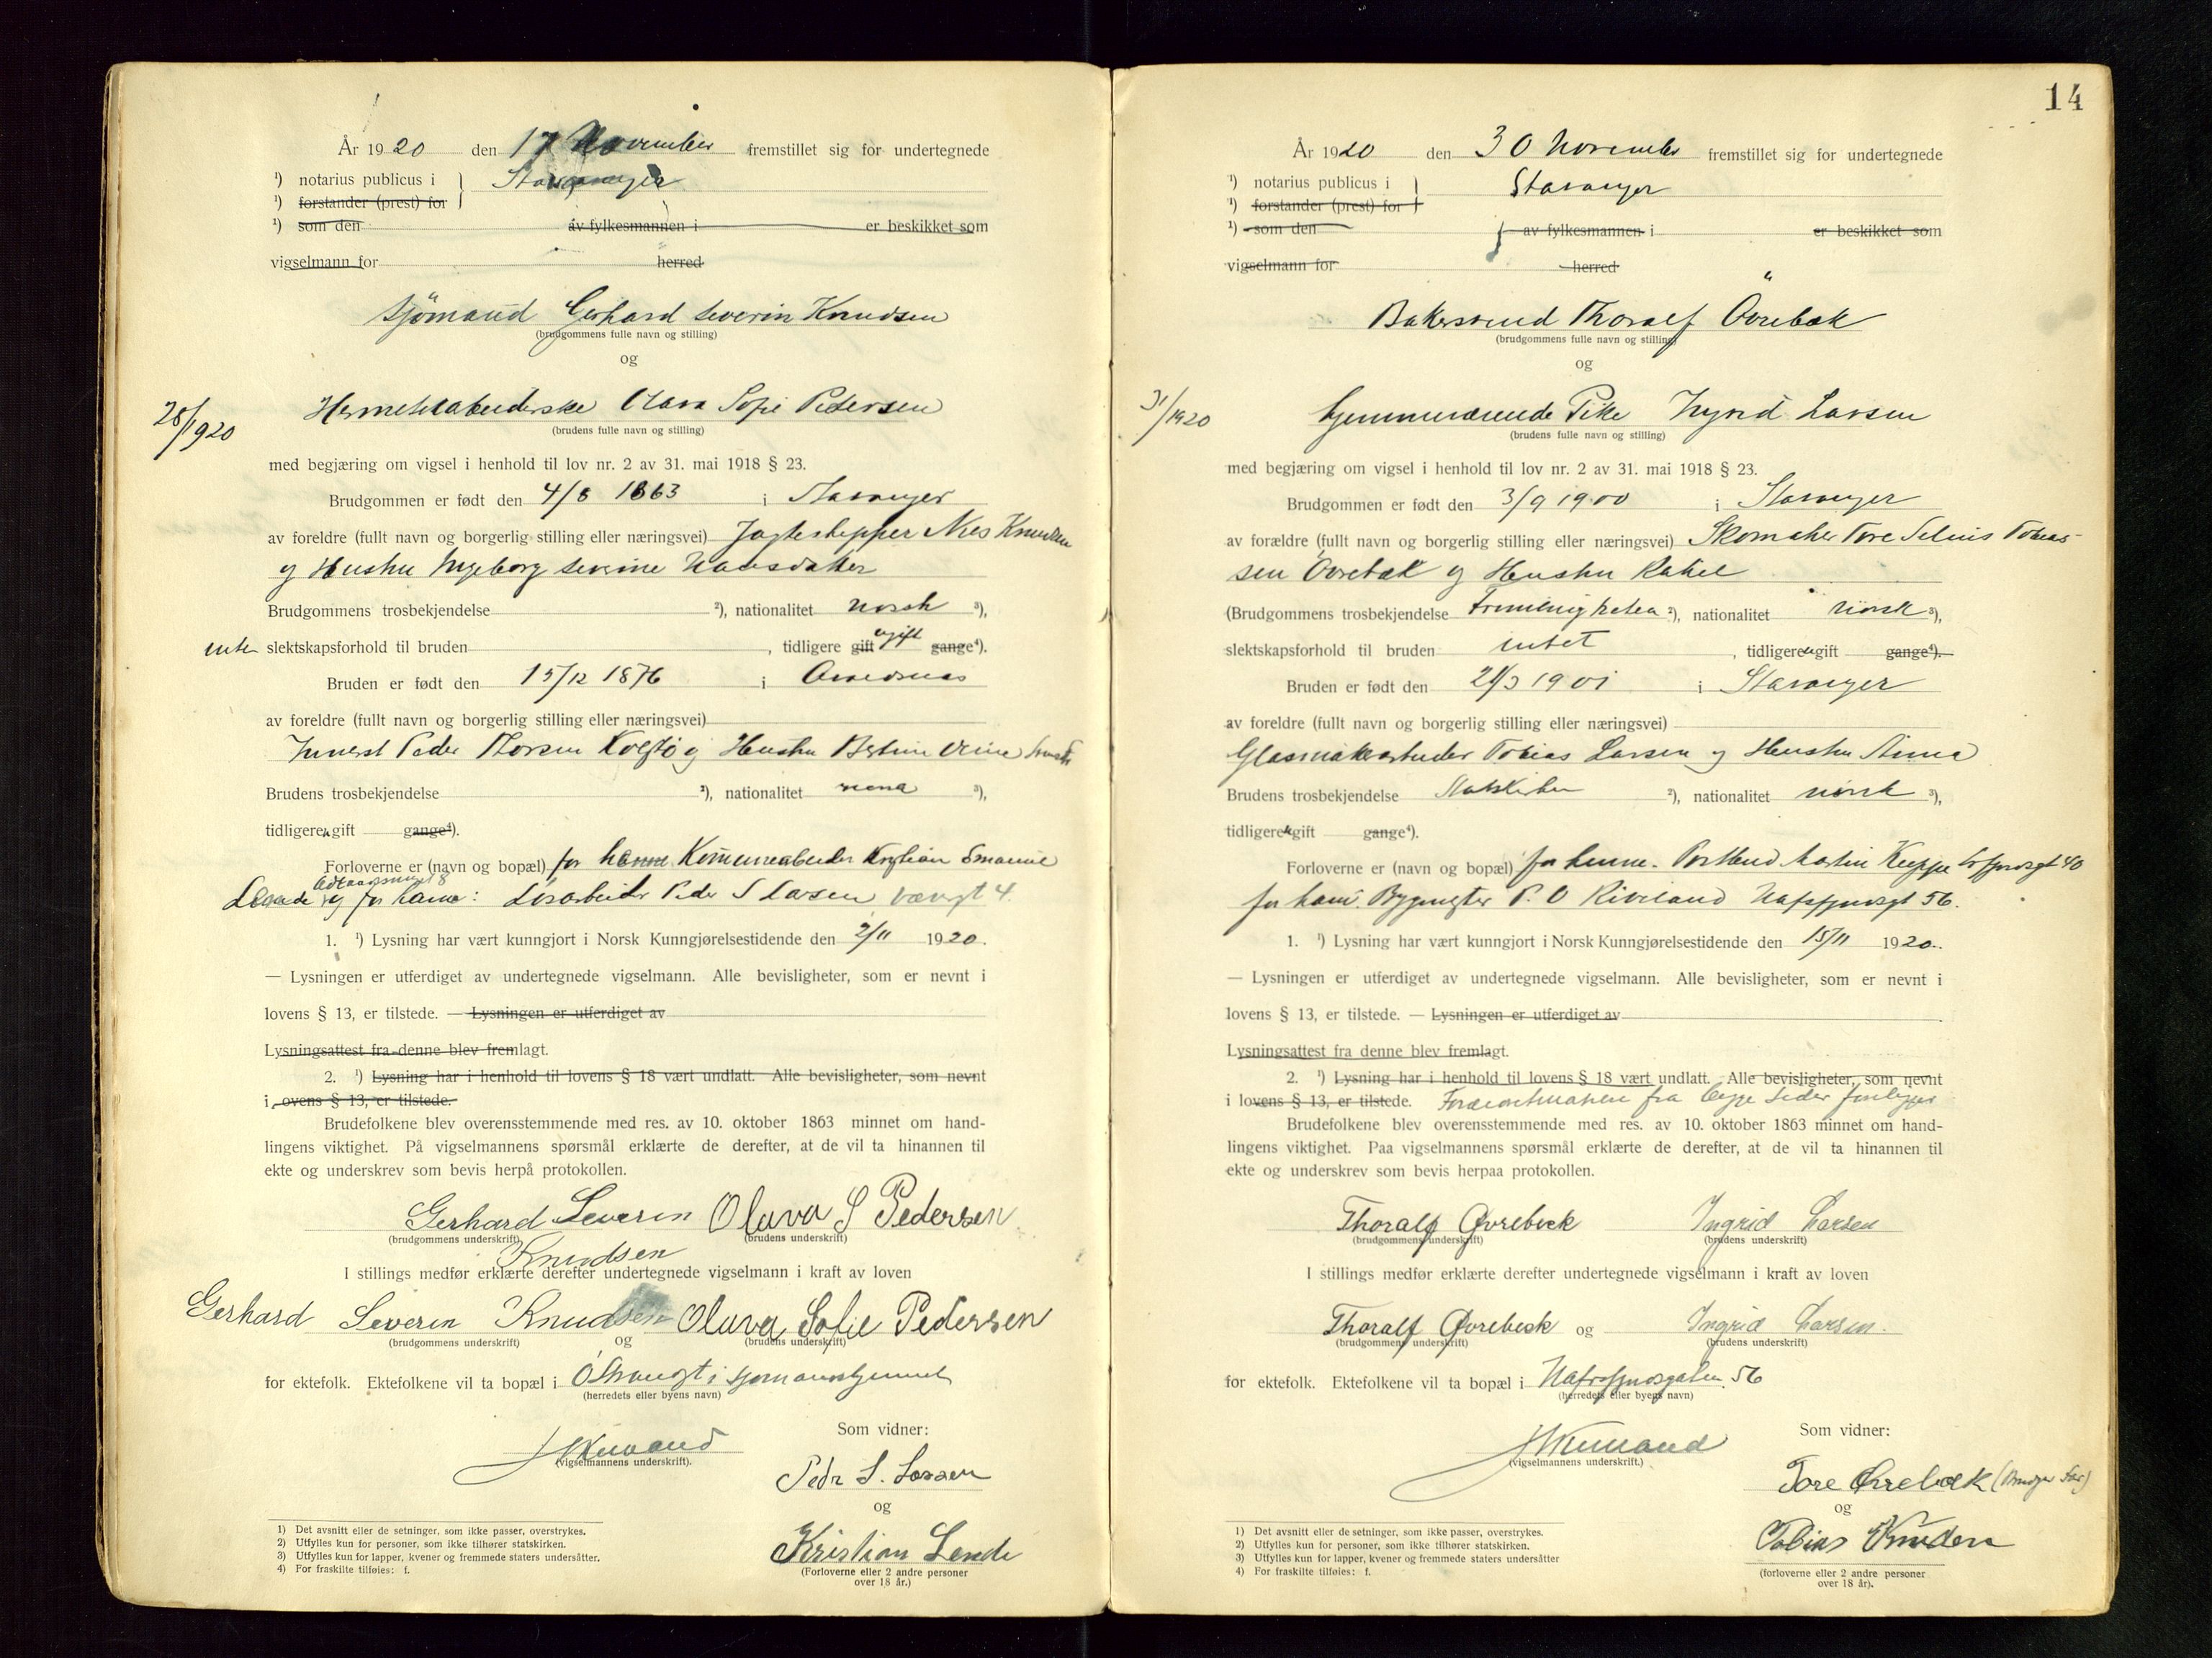 År 1920 den 17 November fremstillet sig for undertegnede
¹) notarius publicus i } Stavanger
¹) forstander (prest) for
¹) som den av fylkesmannen i er beskikket som
vigselmann for herred
Sjömand Gerhard Severin Knudsen
(brudgommens fulle navn og stilling)
og
28/1920
Hermetikarbeiderske Olava Sofie Pedersen
(brudens fulle navn og stilling)
med begjæring om vigsel i henhold til lov nr. 2 av 31. mai 1918 § 23.
Brudgommen er født den 4/8 1863 i Stavanger
av foreldre (fullt navn og borgerlig stilling eller næringsvei) Jagteskipper Nies Knudsen
og Hustru Ingeborg Severine Hansdatter
Brudgommens trosbekjendelse ²), nationalitet norsk ³),
intet slektskapsforhold til bruden , tidligere gift ugift gange⁴).
Bruden er født den 15/12 1876 i
av foreldre (fullt navn og borgerlig stilling eller næringsvei)
Peder Thorsen og Hustru
Brudens trosbekjendelse ²), nationalitet norsk ³),
tidligere ugift gange⁴).
Forloverne er (navn og bopæl) for henne Kommunearbeider Kristian
og for ham: Løsarbeider Peder S Larsen 4.
1. ¹) Lysning har vært kunngjort i Norsk Kunngjørelsestidende den 2/11 1920.
— Lysningen er utferdiget av undertegnede vigselmann. Alle bevisligheter, som er nevnt i
lovens § 13, er tilstede. — Lysningen er utferdiget av
Lysningsattest fra denne blev fremlagt.
2. ¹) Lysning har i henhold til lovens § 18 vært undlatt. Alle bevisligheter, som nevnt
i ovens § 13, er tilstede.
Brudefolkene blev overensstemmende med res. av 10. oktober 1863 minnet om hand-
lingens viktighet. På vigselmannens spørsmål erklærte de derefter, at de vil ta hinannen til
ekte og underskrev som bevis herpå protokollen.
Gerhard Severin Olava S Pedersen
(brudgommens underskrift) (brudens underskrift)
Knudsen
I stillings medfør erklærte derefter undertegnede vigselmann i kraft av loven
Gerhard Severin Knudsen Olava Sofie Pedersen
(brudgommens underskrift) og (brudens underskrift)
for ektefolk. Ektefolkene vil ta bopæl i
(herredets eller byens navn)
Som vidner:
(vigselmannens underskrift).
Pedr S. Larsen
og
Kristian Lende
(Forloverne eller 2 andre personer
over 18 år.)
1) Det avsnitt eller de setninger, som ikke passer, overstrykes.
2) Utfylles kun for personer, som ikke tilhører statskirken.
3) Utfylles kun for lapper, kvener og fremmede staters undersåtter.
4) For fraskilte tilføies: f.
14
År 1920 den 30 November fremstillet sig for undertegnede
¹) notarius publicus i } Stavanger
¹) forstander (prest) for
¹) som den av fylkesmannen i er beskikket som
vigselmann for herred
Bakersvend Thoralf Övrebæk
(brudgommens fulle navn og stilling)
og
31/1920
Hjemmeværende Pike Ingrid Larsen
(brudens fulle navn og stilling)
med begjæring om vigsel i henhold til lov nr. 2 av 31. mai 1918 § 23.
Brudgommen er født den 3/9 1900 i Stavanger
av forældre (fullt navn og borgerlig stilling eller næringsvei) Skomaker Tore Selius Tobias-
sen Övrebæk og Hustru Rakel
(Brudgommens trosbekjendelse Frimenigheten ²), nationalitet norsk ³),
slektskapsforhold til bruden intet , tidligere ugift gange⁴).
Bruden er født den 21/3 1901 i Stavanger
av foreldre (fullt navn og borgerlig stilling eller næringsvei)
Glasmakerarbeider Tobias Larsen og Hustru Anna
Brudens trosbekjendelse Statskirken ²), nationalitet norsk ³),
tidligere ugift gange⁴).
Forloverne er (navn og bopæl) for henne. Postbud Martin 40
for ham. Bygmester P. O Riveland Hafrsfjordsgt 56.
1. ¹) Lysning har vært kunngjort i Norsk Kunngjørelsestidende den 15/11 1920.
— Lysningen er utferdiget av undertegnede vigselmann. Alle bevisligheter, som er nevnt i
lovens § 13, er tilstede. — Lysningen er utferdiget av
Lysningsattest fra denne blev fremlagt.
2. ¹) Lysning har i henhold til lovens § 18 vært undlatt. Alle bevisligheter, som nevnt
i lovens § 13, er tilstede. fra begge Sider foreligger
Brudefolkene blev overensstemmende med res. av 10. oktober 1863 minnet om hand-
lingens viktighet. Paa vigselmannens spørsmål erklærte de derefter, at de vil ta hinannen til
ekte og underskrev som bevis herpaa protokollen.
Thoralf Øvrebæk Ingrid Larsen
(brudgommens underskrift) (brudens underskrift)
I stillings medfør erklærte derefter undertegnede vigselmann i kraft av loven
Thoralf Øvrebæk og Ingrid Larsen.
(brudgommens underskrift) (brudens underskrift)
for ektefolk. Ektefolkene vil ta bopæl i Hafrsfjordsgaten 56
(herredets eller byens navn)
Som vidner:
(vigselmannens underskrift.)
Tore Øvrebæk (Brudgs Far)
og
Tobias Knudsen
(forloverne eller 2 andre personer
over 18 år).
1) Det avsnitt eller de setninger, som ikke passer, overstrykes.
2) Utfylles kun for personer, som ikke tilhører statskirken.
3) Utfylles kun for lapper, kvener og fremmede staters undersåtter
4) For fraskilte tilføies: f.